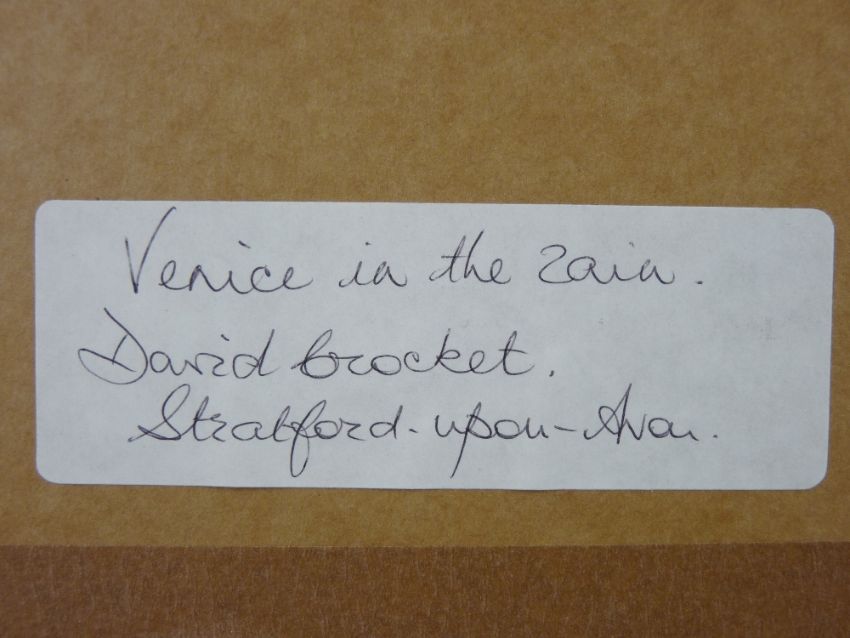 Venice in the rain.
David brocket.
Stratford-upon-Avon.